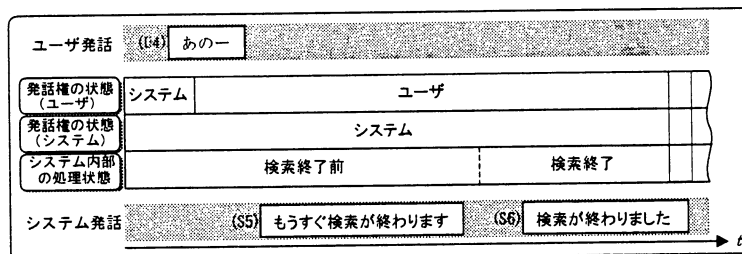 ユーザ発話 (U4) あのー
発話権の状態
(ユーザ)
システム ユーザ
発話権の状態
(システム)
システム
システム内部
の処理状態
検索終了前 検索終了
システム発話 (S5) もうすぐ検索が終わります (S6) 検索が終わりました
t